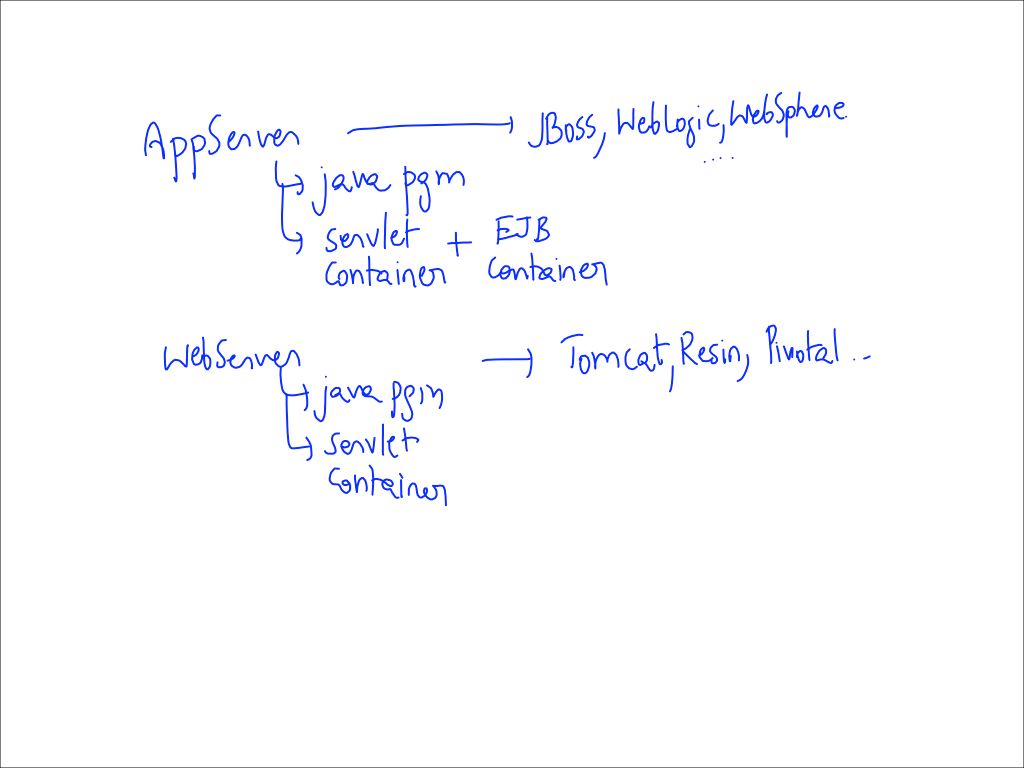 AppServer → JBoss, WebLogic, WebSphere
....
→ java pgm
→ servlet + EJB
container container
WebServer → Tomcat, Resin, Pivotal ..
→ java pgm
→ servlet
container